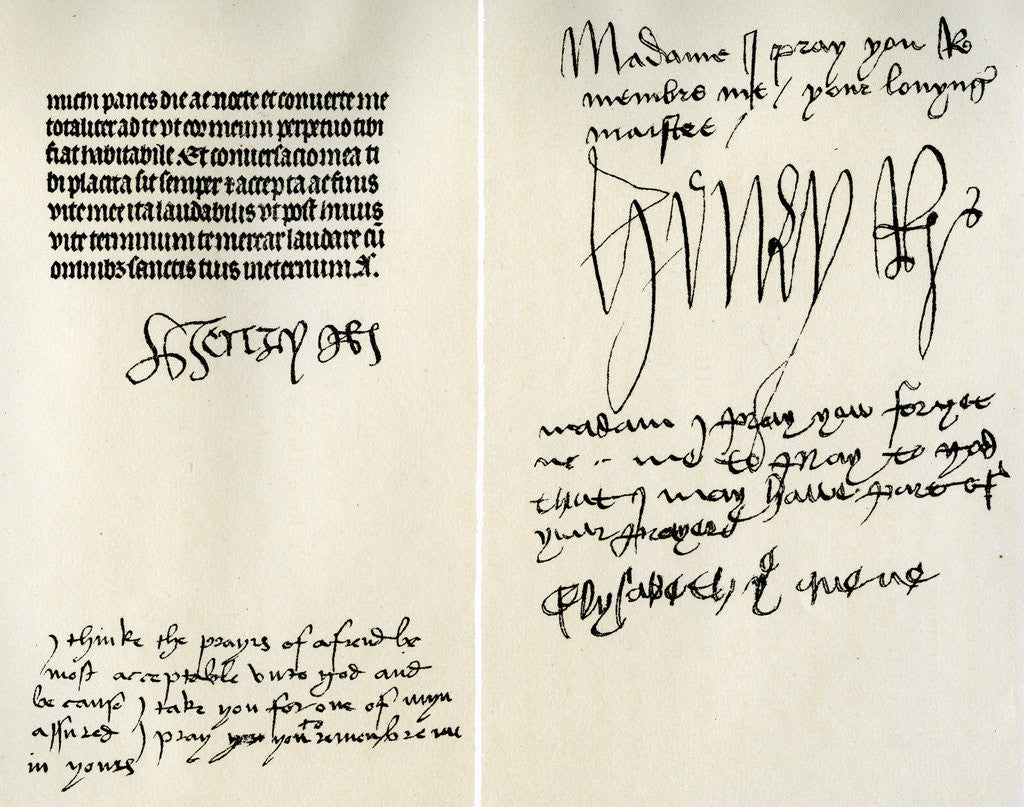 michi panes die ac nocte et conuerte me
totaliter ad te vt cor meum perpetuo tibi
fiat habitabile. Et conuersacio mea ti
bi placita sit semper & accepta ac finis
vite mee ita laudabilis vt post huius
vite terminum te merear laudare cū
omnibȝ sanctis tuis in eternum. A.
Henry
I thinke the prayrs of a frend be
most acceptable vnto god and
be cause I take you for one of myn
assured I pray you to remembre me
in yours
Madame I pray you Re
membre me / your louyng
maistre /
Henry R
madam I pray you forget
me to pray to god
that I may haue part of
your prayers
Elysabeth y quene